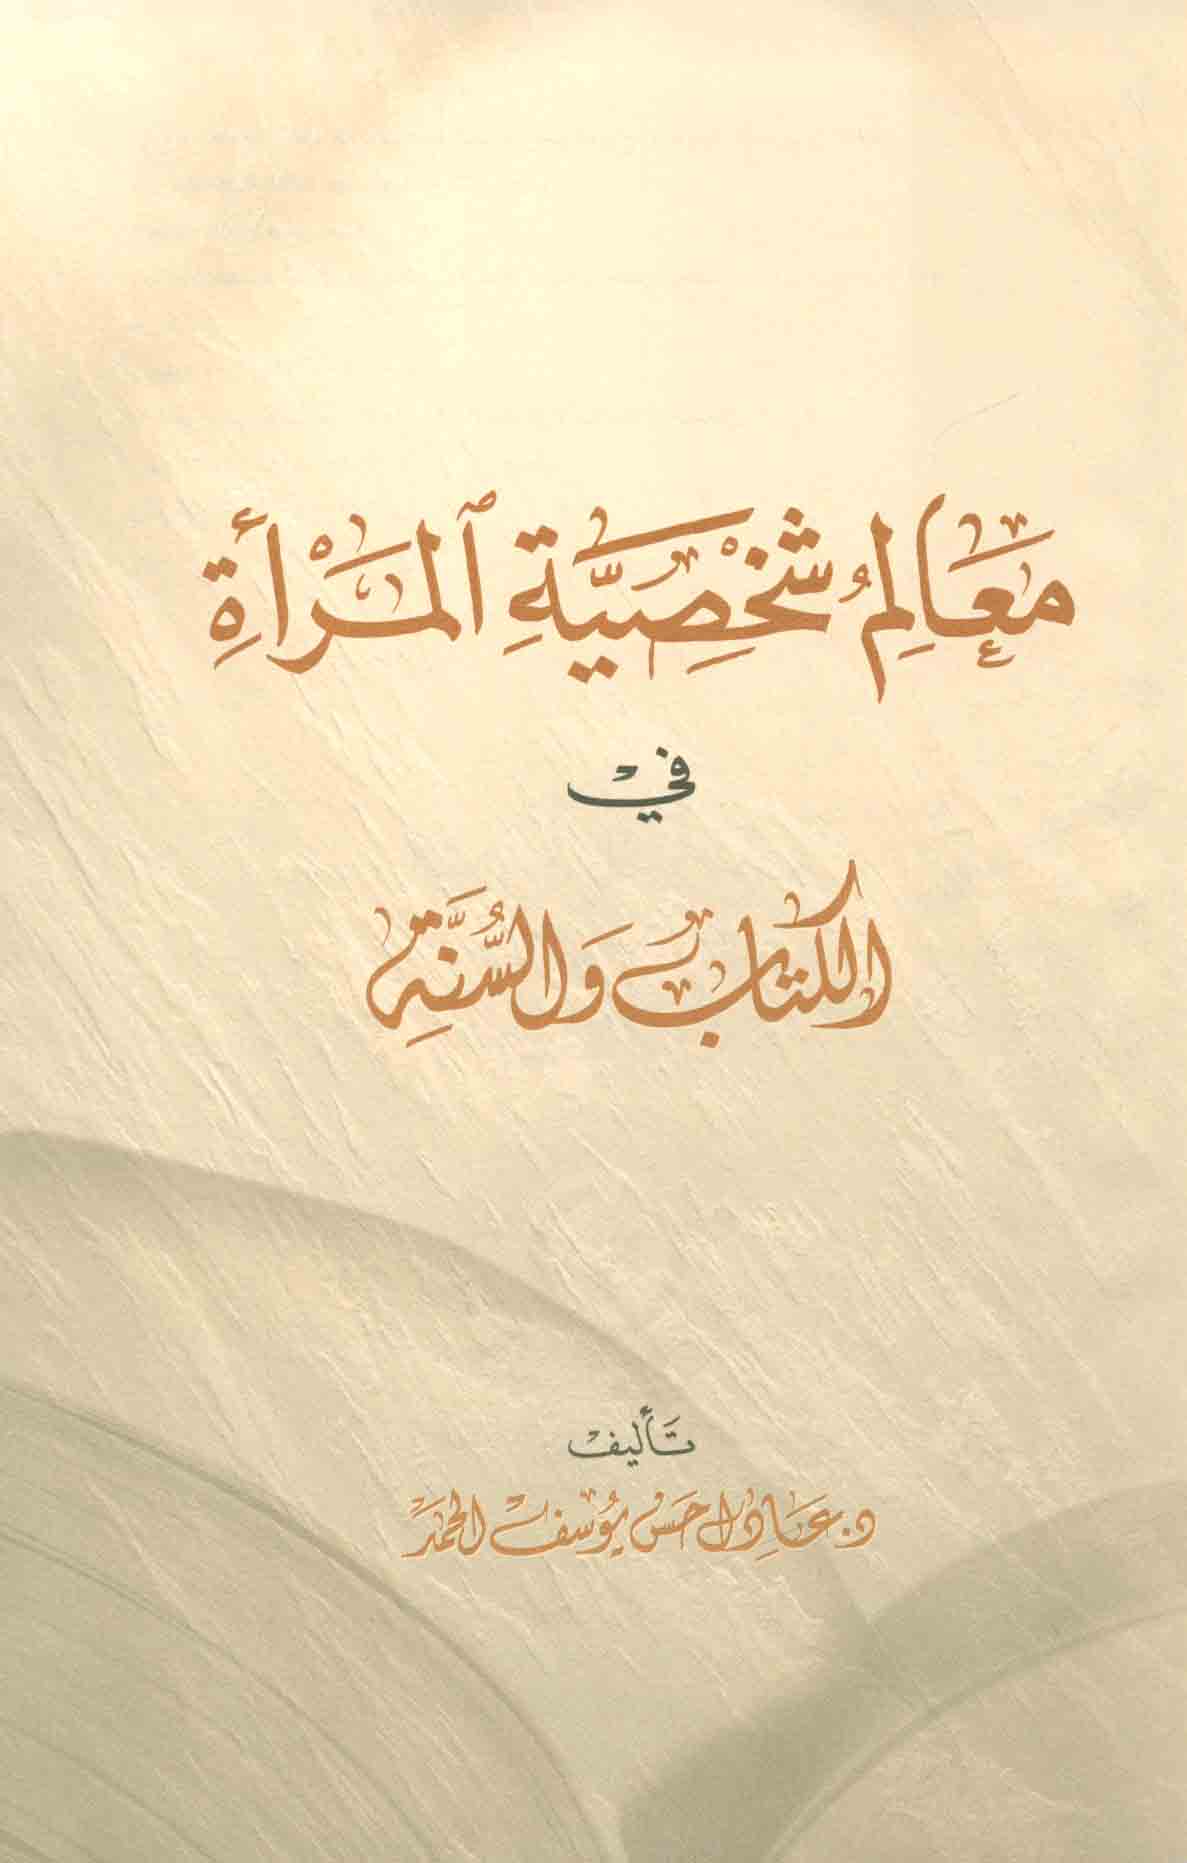 معالم شخصية المرأة
في
الكتاب والسنة
تأليف
د. عادل حسن يوسف الحمد